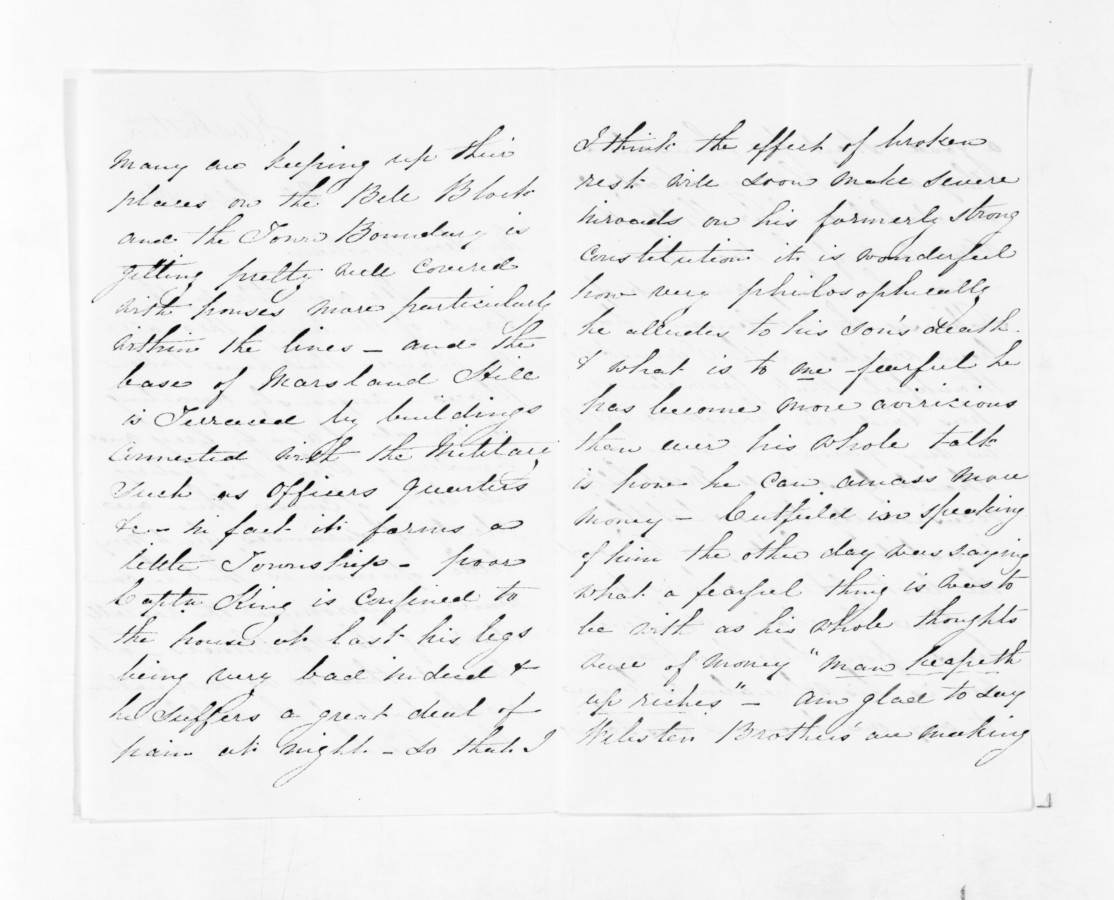 many are keeping up their
places on the Bell Block
and the Town Boundary is
getting pretty well covered
with houses more particularly
within the lines – and the
base of Marsland Hill
is Terraced by buildings
connected with the Military
such as Officers Quarters
&c in fact it forms a
little Township – poor
Captn King is confined to
the house at last his legs
being very bad indeed &
he suffers a great deal of
pain at night – so that I
I think the effect of broken
rest will soon make severe
inroads on his formerly strong
constitution it is wonderful
how very philosophically
he alludes to his son's death
& what is to me fearful he
has become more avaricious
than ever his whole talk
is how he can amass more
money – Cutfield in speaking
of him the other day was saying
what a fearful thing it was to
be with as his whole thoughts
were of money "man heapeth
up riches" – am glad to say
Webster Brothers are making